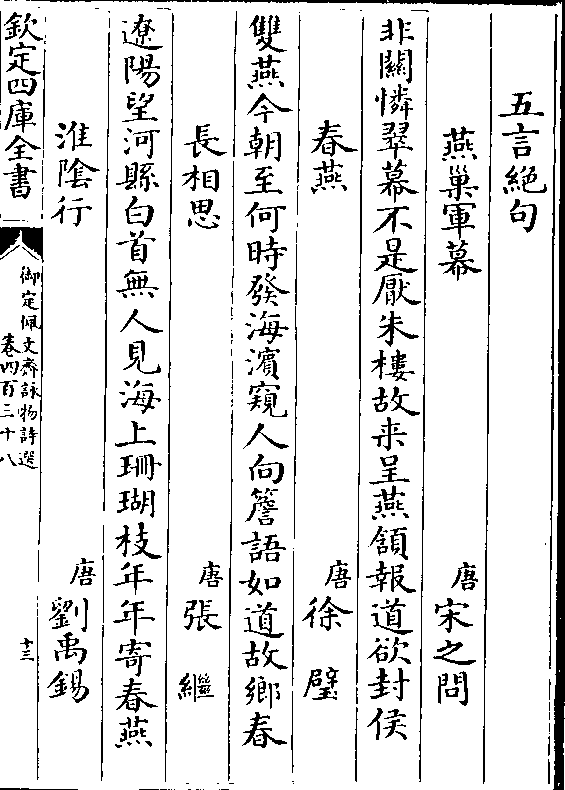 五言絶句
燕巢軍幕　唐　宋之問
非關憐翠幕不是厭朱樓故来呈燕頷報道欲封侯
春燕　唐　徐　璧
雙燕今朝至何時發海濱窺人向簷語如道故鄉春
長相思　唐　張　繼
遼陽望河縣白首無人見海上珊瑚枝年年寄春燕
淮隂行　唐　劉禹錫
欽定四庫全書
御定佩文齋詠物詩選
卷四百三十八
十三